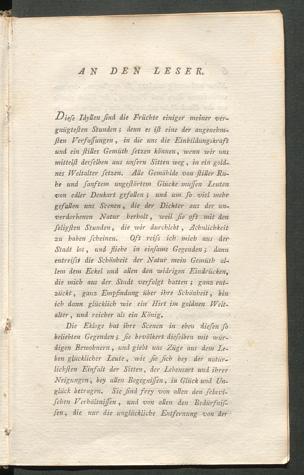 AN DEN LESER.
Diese Idyllen sind die Früchte einiger meiner ver-
gnügtesten Stunden; denn es ist eine der angenehm-
sten Verfassungen, in die uns die Einbildungskraft
und ein stilles Gemüth setzen können, wenn wir uns
mittelst derselben aus unsern Sitten weg, in ein gold-
nes Weltalter setzen. Alle Gemählde von stiller Ru-
he und sanftem ungestörtem Glücke müssen Leuten
von edler Denkart gefallen; und um so viel mehr
gefallen uns Scenen, die der Dichter aus der un-
verdorbenen Natur herholt, weil sie oft mit den
seligsten Stunden, die wir durchlebt, Aehnlichkeit
zu haben scheinen. Oft reiss ich mich aus der
Stadt los, und fliehe in einsame Gegenden; dann
entreisst die Schönheit der Natur mein Gemüth al-
lem dem Eckel und allen den widrigen Eindrücken,
die mich aus der Stadt verfolgt hatten; ganz ent-
zückt, ganz Empfindung über ihre Schönheit, bin
ich dann glücklich wie ein Hirt im goldnen Welt-
alter, und reicher als ein König.
Die Ekloge hat ihre Scenen in eben diesen so
beliebten Gegenden; sie bevölkert dieselben mit wür-
digen Bewohnern, und giebt uns Züge aus dem Le-
ben glücklicher Leute, wie sie sich bey der natür-
lichsten Einfalt der Sitten, der Lebensart und ihrer
Neigungen, bey allen Begegnissen, in Glück und Un-
glück betragen. Sie sind frey von allen den sclavi-
schen Verhältnissen, und von allen den Bedürfnis-
sen, die nur die unglückliche Entfernung von der